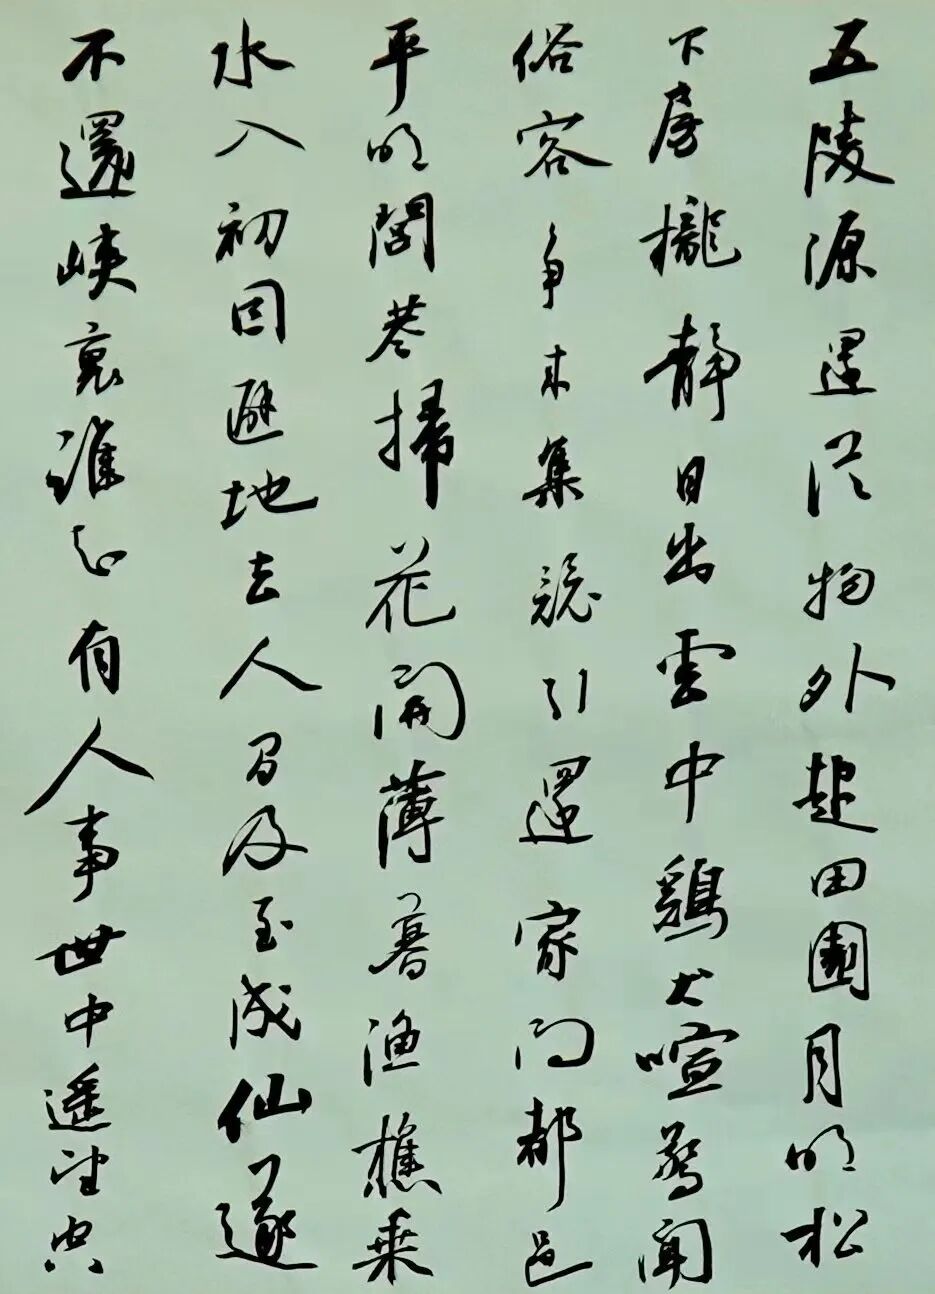 五陵源還從物外起田園月明松
下房櫳靜日出雲中鷄犬喧驚聞
俗容争来集競引還家問都邑
平明閭巷掃花開薄暮漁樵乘
水入初因避地去人間及至成仙遂
不還峽裏誰知有人事世中遥望空